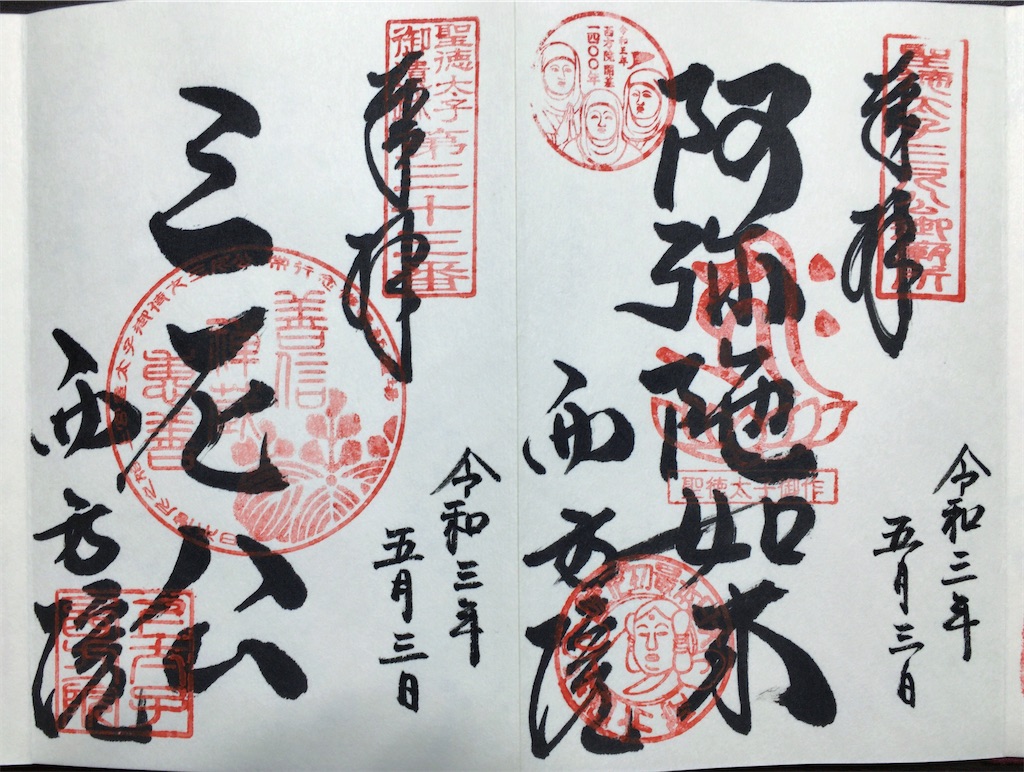 奉拝
聖徳太子三尼公御廟所
令和五年
西方院開基
一四〇〇年
阿弥陀如来
聖徳太子御作
西方院
令和三年
五月三日
奉拝
聖徳太子
御遺跡
第三十三番
三尼公
善信
禅蔵
恵善
西方院
令和三年
五月三日